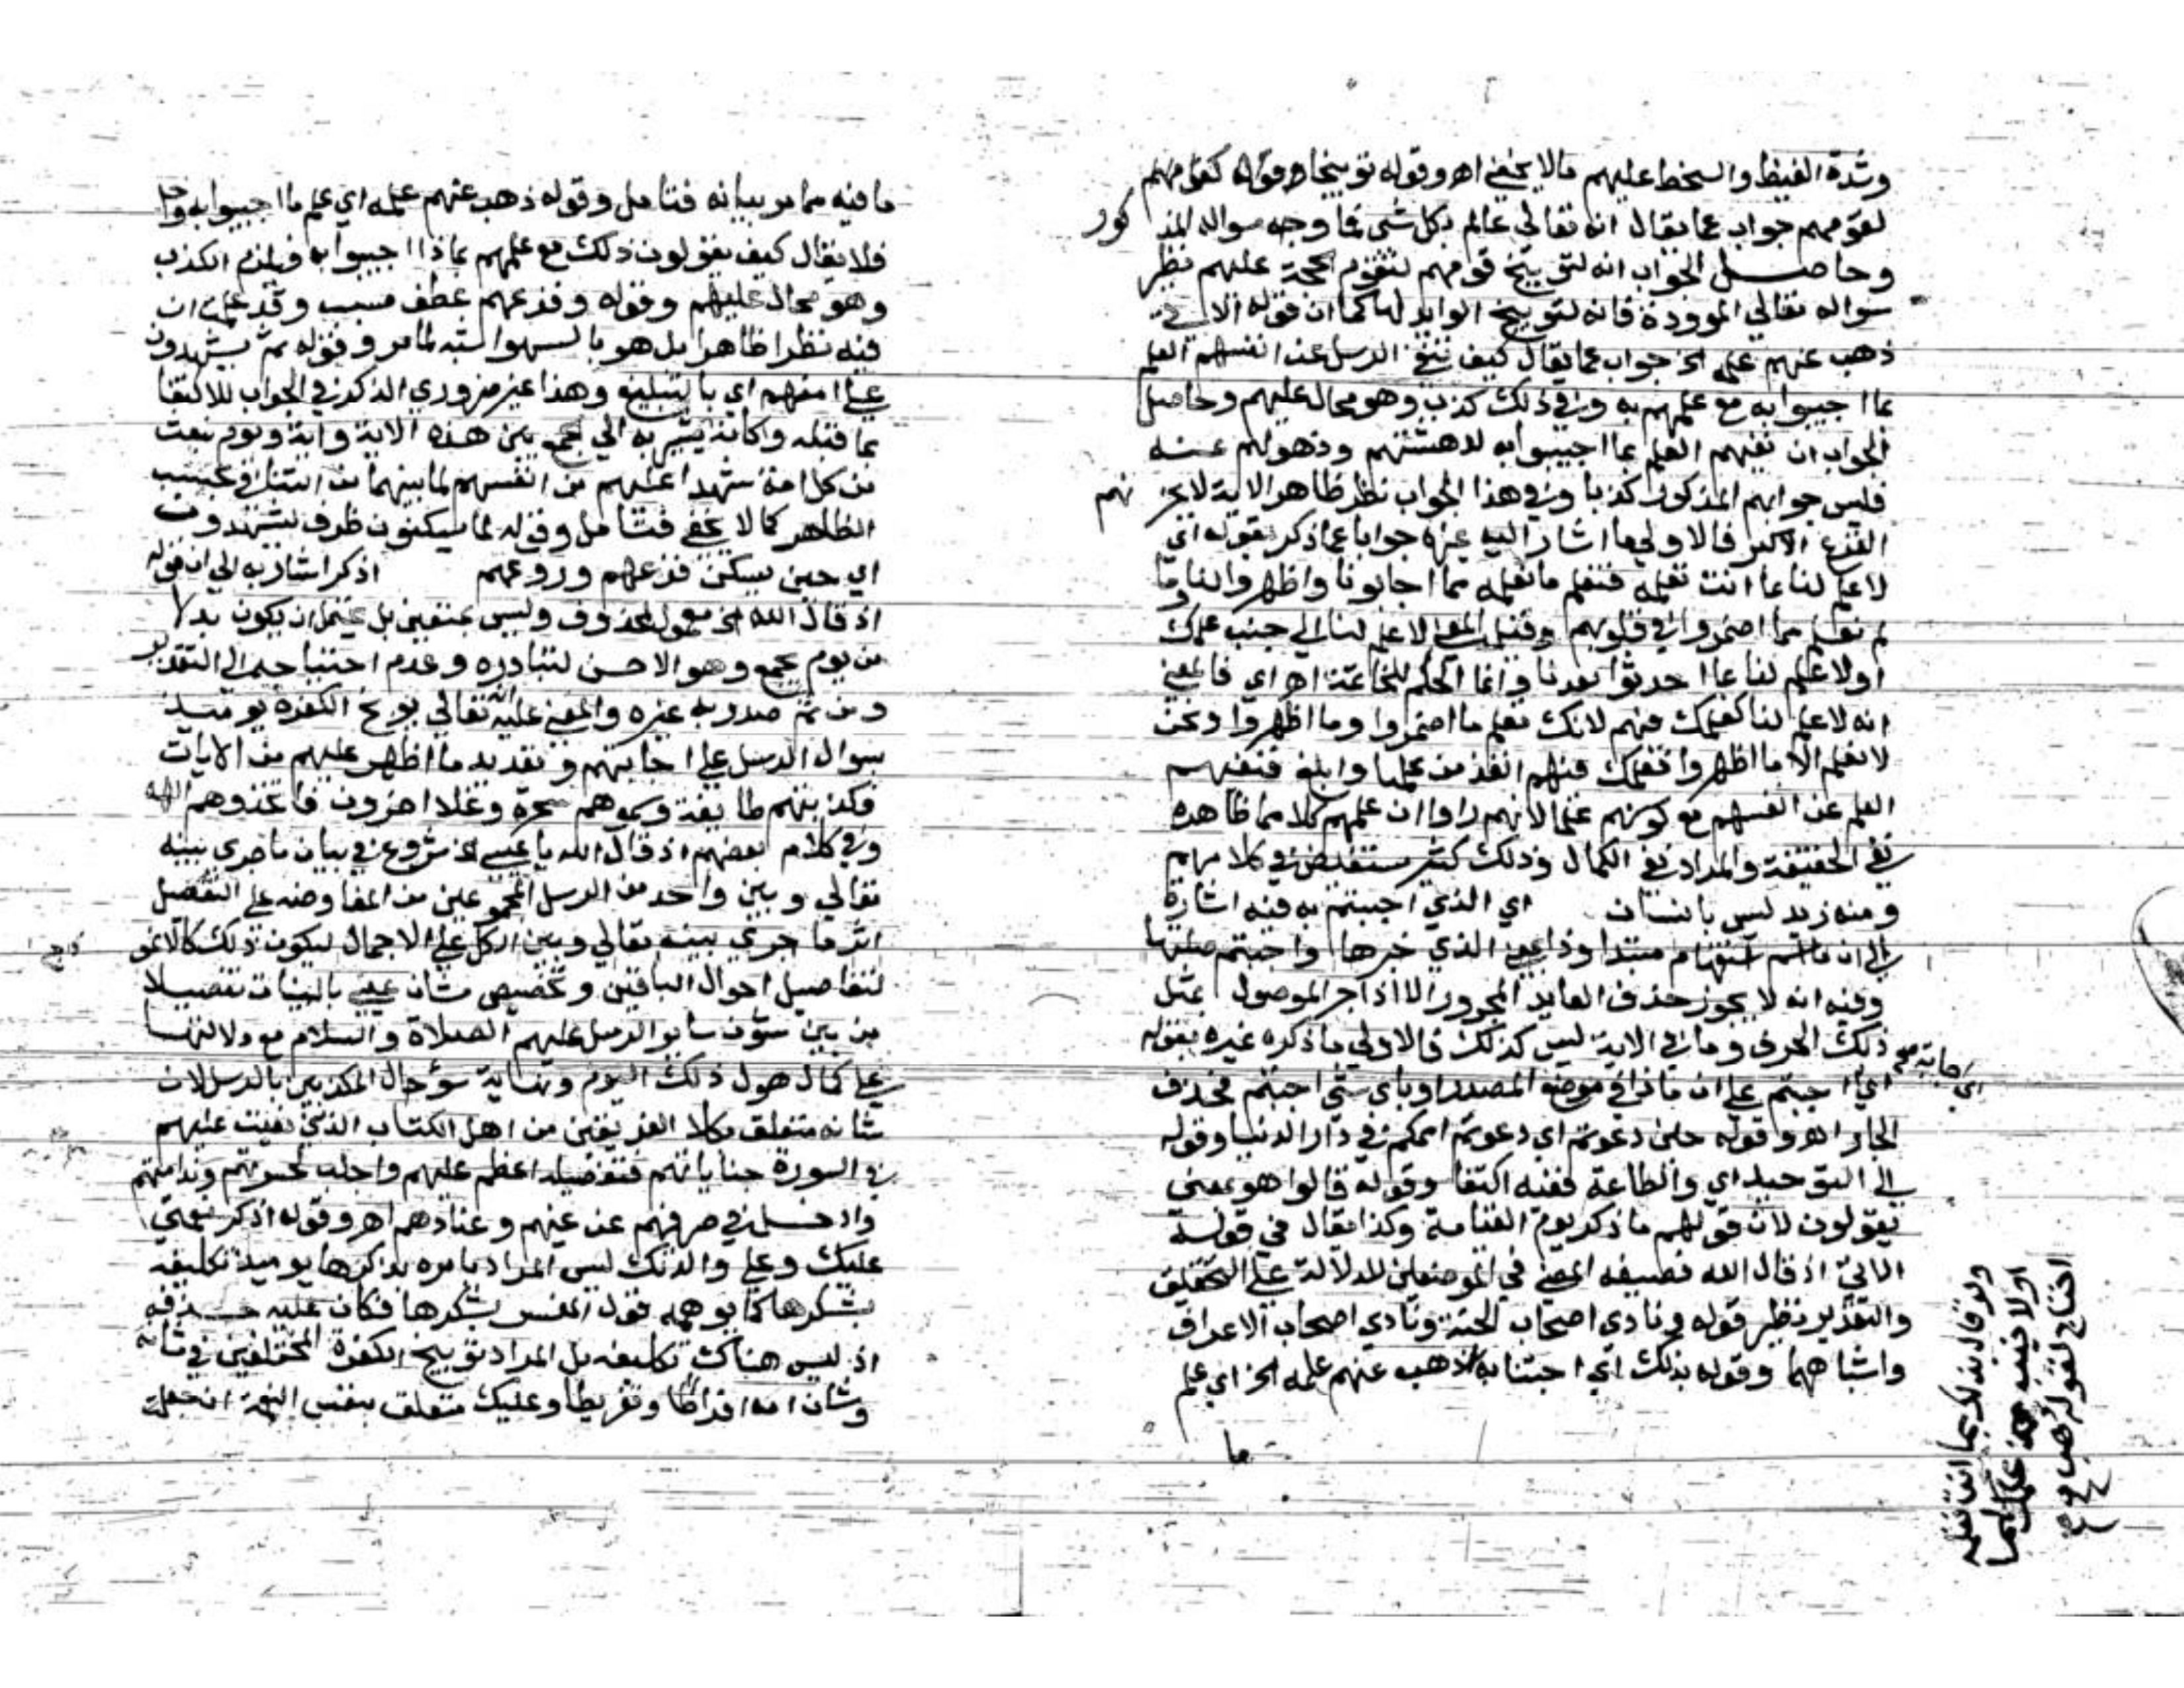 وشدة الغيظ والسخط عليهم مالا يخفى اه وقوله توبيخا اه قوله كقومهم
لقومهم جواب عما يقال انه تعالى عالم بكل شى فما وجه سواله المذ كور
وحاصل الجواب انه لتوبيخ قومهم لتقوم الحجة عليهم نظر
سواله تعالى الموودة فانه لتوبيخ الوايد لها كما ان قوله الاتي
ذهب عنهم علمه الخ جواب عما يقال كيف تنفي الرسل عن انفسهم العلم
بما اجيبوا به مع علمهم به وفي ذلك كذب وهو محال عليهم وحاصل
الجواب ان نفيهم العلم بما اجيبوا به لدهشتهم وذهولهم عنه
فليس جوابهم المذكور كذبا وفي هذا الجواب نظر ظاهر الاية لا يحز نهم
الفزع الاكبر فالاولى ما اشار اليه غيره جوابا عما ذكر بقوله اي
لا علم لنا بما انت تعلمه فتعلم ما نعلمه مما اجابونا واظهروا لنا وما
لم نعلم مما اضمروا في قلوبهم وقيل المعنى لا علم لنا الى جنب علمك
اولا علم لنا بما احدثوا بعدنا وانما الحكم للخاتمة اه اي فالمعنى
انه لا علم لنا كعلمك فيهم لانك تعلم ما اضمروا وما اظهروا ونحن
لا نعلم الا ما اظهروا فعلمك فيهم انفذ من علمنا وابلغ فنفيهم
العلم عن انفسهم مع كونهم علما لانهم راوا ان علمهم كلا مما ظاهره
نفي الحقيقة والمراد نفي الكمال وذلك كثير مستفيض في كلامهم
ومنه زيد ليس بانسان اي الذي اجبتم به فيه اشارة
الى ان ما اسم استفهام مبتدا وذا بمعنى الذي خبرها واجبتم صلتها
وفيه انه لا يجوز حذف العايد المجرور الا اذا جر الموصول بمثل
ذلك الحرف وما في الاية ليس كذلك فالاولى ما ذكره غيره بقوله
اي اجبتم على ان ماذا في موضع المصدر او باى شى اجبتم فحذف
اي اجابة صح
الجار اه وقوله حين دعوتم اي دعوتم اممكم في دار الدنيا وقوله
الى التوحيد اي والطاعة ففيه اكتفا وقوله قالوا هو بمعنى
يقولون لان قولهم ما ذكر يوم القيامة وكذا يقال في قوله
الاتي اذ قال الله فصيغة المضي في الموضعين للدلالة على التحقيق
والتقدير نظير قوله ونادى اصحاب الجنة ونادى اصحاب الاعراف
واشباههما وقوله بذلك اي اجبتنا به ذهب عنهم علمه الخ اي علم
ما
ولو قال بذلك بما اننا نعلم
اولا
احتاج لقوله ذهب
ما فيه مما مر بيانه فتامل وقوله ذهب عنهم علمه اي علم ما اجيبوا به
فلا يقال كيف يقولون ذلك مع علمهم بماذا اجيبوا به فيلزم الكذب
وهو محال عليهم وقوله وفزعهم عطف مسبب وقد علمت ان
فيه نظرا ظاهرا بل هو بالسهو اشبه لما مر وقوله ثم يشهدون
على اممهم اي بالتبليغ وهذا غير ضروري الذكر في الجواب للاكتفا
بما قبله وكانه يشير به الى الجمع بين هذه الاية واية ويوم نبعث
من كل امة شهيدا عليهم من انفسهم لما بينهما من التنافي بحسب
الظاهر كما لا يخفى فتامل وقوله لما يسكنون ظرف ليشهدون
اي حين يسكن فزعهم وروعهم اذكر اشار به الى ان قوله
اذ قال الله الخ معمول لمحذوف وليس بمتعين بل يحتمل ان يكون بدلا
من يوم يجمع وهو الاحسن لتبادره وعدم احتياجه الى التقدير
ومن ثم صدر به غيره والمعنى عليه تعالى يوبخ الكفرة يوميذ
بسوال الرسل على اجابتهم وتعديد ما اظهر عليهم من الايات
فكذبتهم طايفة وسموهم سحرة وغلا اخرون فاتخذوهم الهة
وفي كلام بعضهم اذ قال الله يا عيسى الخ شروع في بيان ما جرى بينه
تعالى وبين واحد من الرسل المجموعين من المفاوضه على التفصيل
اثر ما جرى بينه تعالى وبين الكل على الاجمال ليكون ذلك كالانموذج
لتفاصيل احوال الباقين وتخصيص شان عيسى بالبيان تفصيلا
من بين شون ساير الرسل عليهم الصلاة والسلام مع دلالتها
على كمال هول ذلك اليوم ونهاية سو حال المكذبين بالرسل لان
شانه متعلق بكلا الفريقين من اهل الكتاب الذين نعيت عليهم
في السورة جناياتهم فتفصيله اعظم عليهم واجلب لحسرتهم وندامتهم
وادخل في صرفهم عن غيهم وعنادهم اه وقوله اذكر نعمتي
عليك وعلى والدتك ليس المراد بامره بذكرها يوميذ تكليفه
بشكرها كما يوهمه قول المفسر بشكرها فكان عليه حذفه
اذ ليس هناك تكليف بل المراد توبيخ الكفرة المختلفين في شانه
وشان امه افراطا وتفريطا وعليك متعلق بنفس النعمة ان جعلت